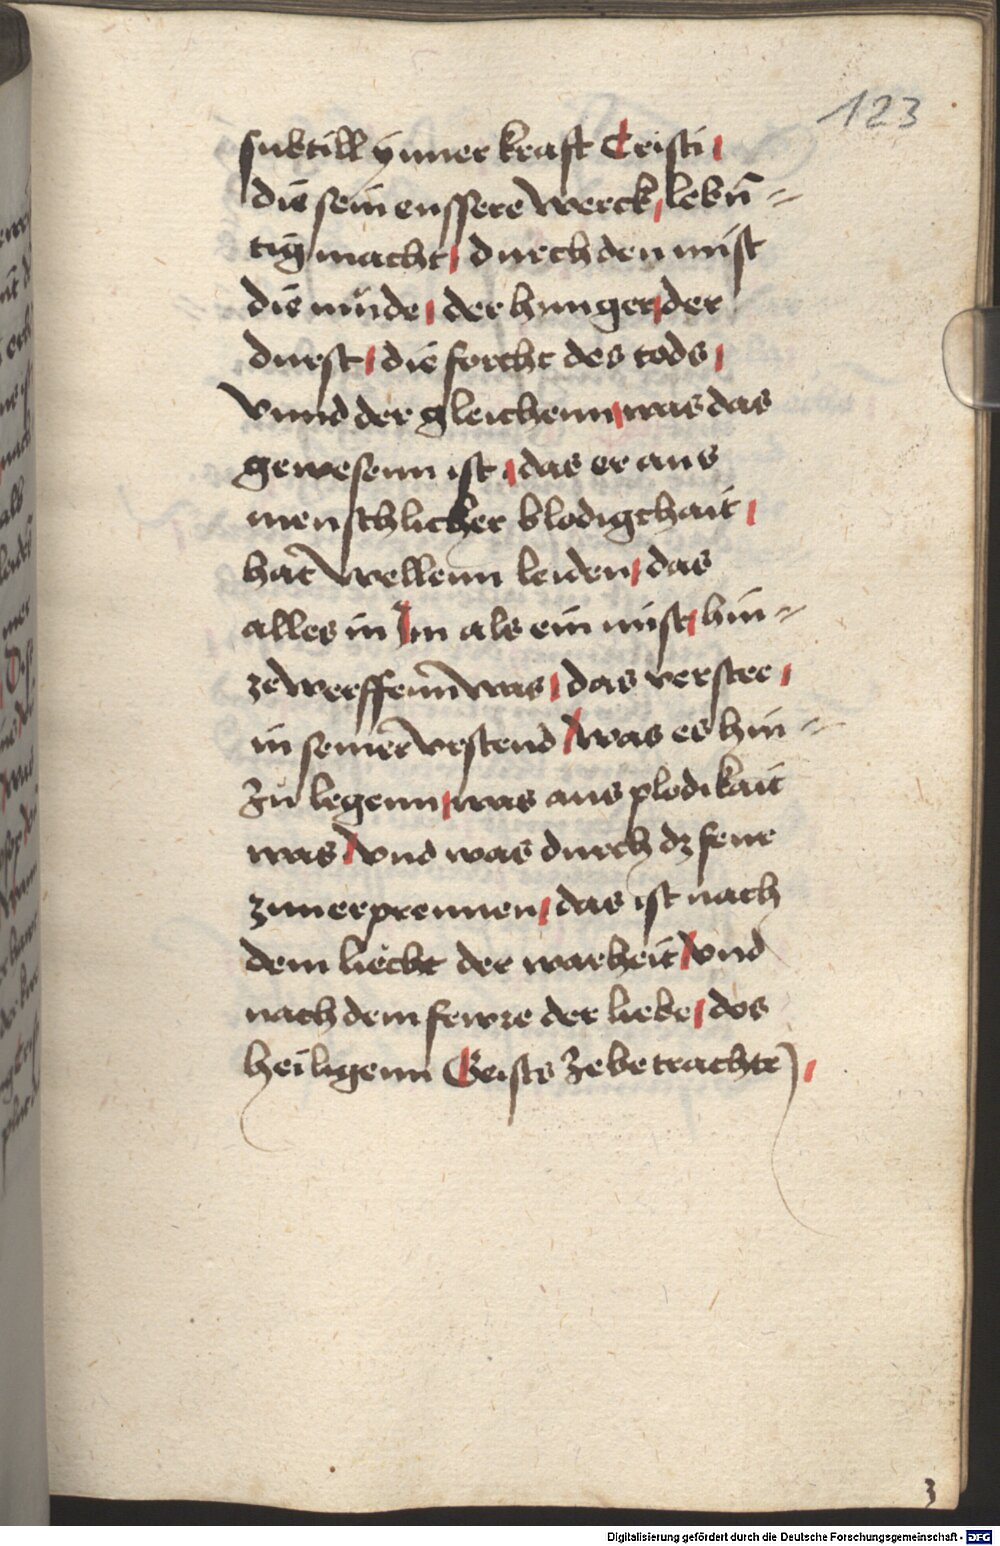 123
subtill ynner kraft Cristi
die sein eussere werck lebn̄-
tig macht durch den mist
die müde der hunger der
durst die forcht des tods
vnnd der gleichenn was das
gewesenn ist das er aus
menschlicher blodigchait
hat wellenn leiden das
alles in Im als ein mist hin-
zewerffenn was das verstee
in seiner vrstend was es hin-
zu legenn was aus plodikait
was vnd was durch dz feur
zuuerprennen das ist nach
dem liecht der warheit vnd
nach dem fewre der liebe des
heiligenn Geists ze betrachtn
3
Digitalisierung gefördert durch die Deutsche Forschungsgemeinschaft - DFG